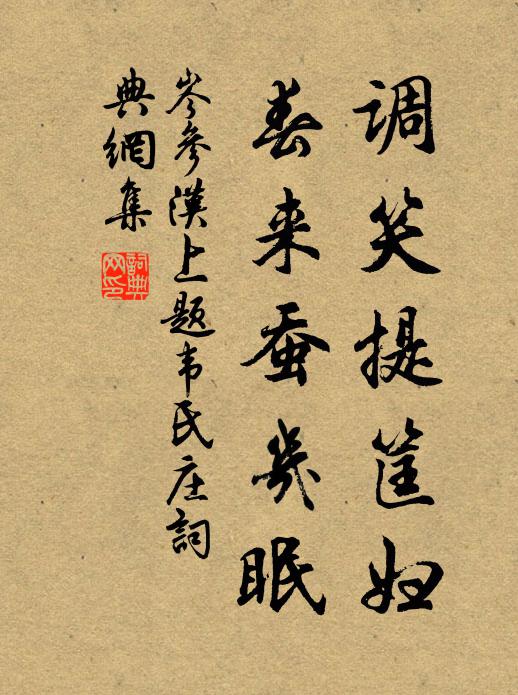 调笑提筐妇
春来蚕几眠
岑参汉上题韦氏庄词
典网集
词典网印